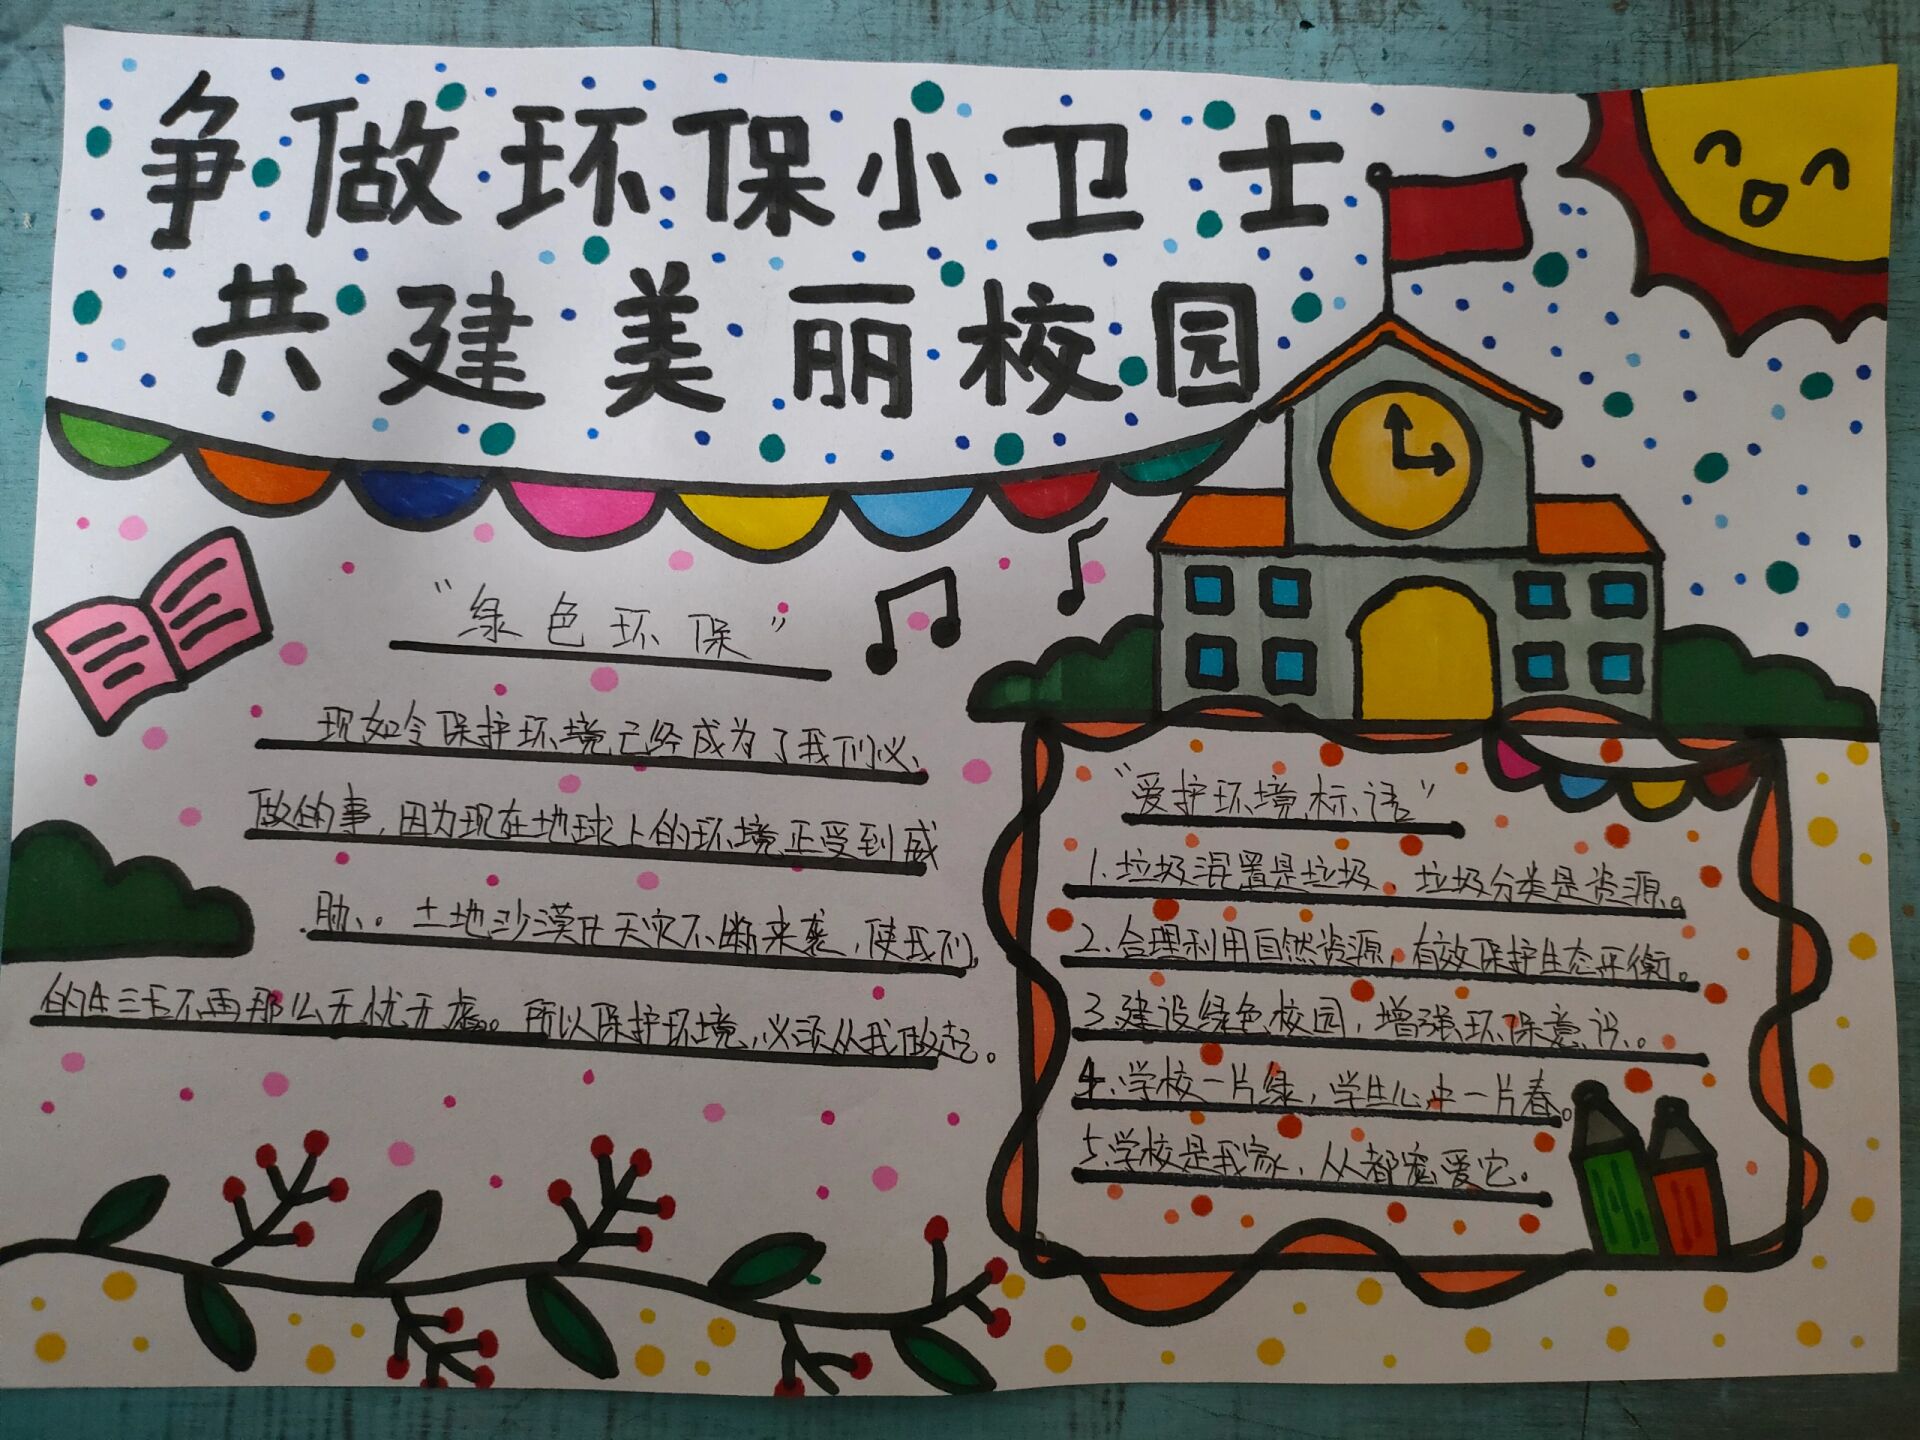 争做环保小卫士
共建美丽校园
“绿色环保”
现如今保护环境已经成为了我们必
做的事,因为现在地球上的环境正受到威
胁。土地沙漠化天灾不断来袭,使我们
的生活不再那么无忧无虑。所以保护环境,必须从我做起。
“爱护环境标语”
1.垃圾混置是垃圾,垃圾分类是资源。
2.合理利用自然资源,有效保护生态平衡。
3.建设绿色校园,增强环保意识。
4.学校一片绿,学生心中一片春。
5.学校是我家,从都宠爱它。